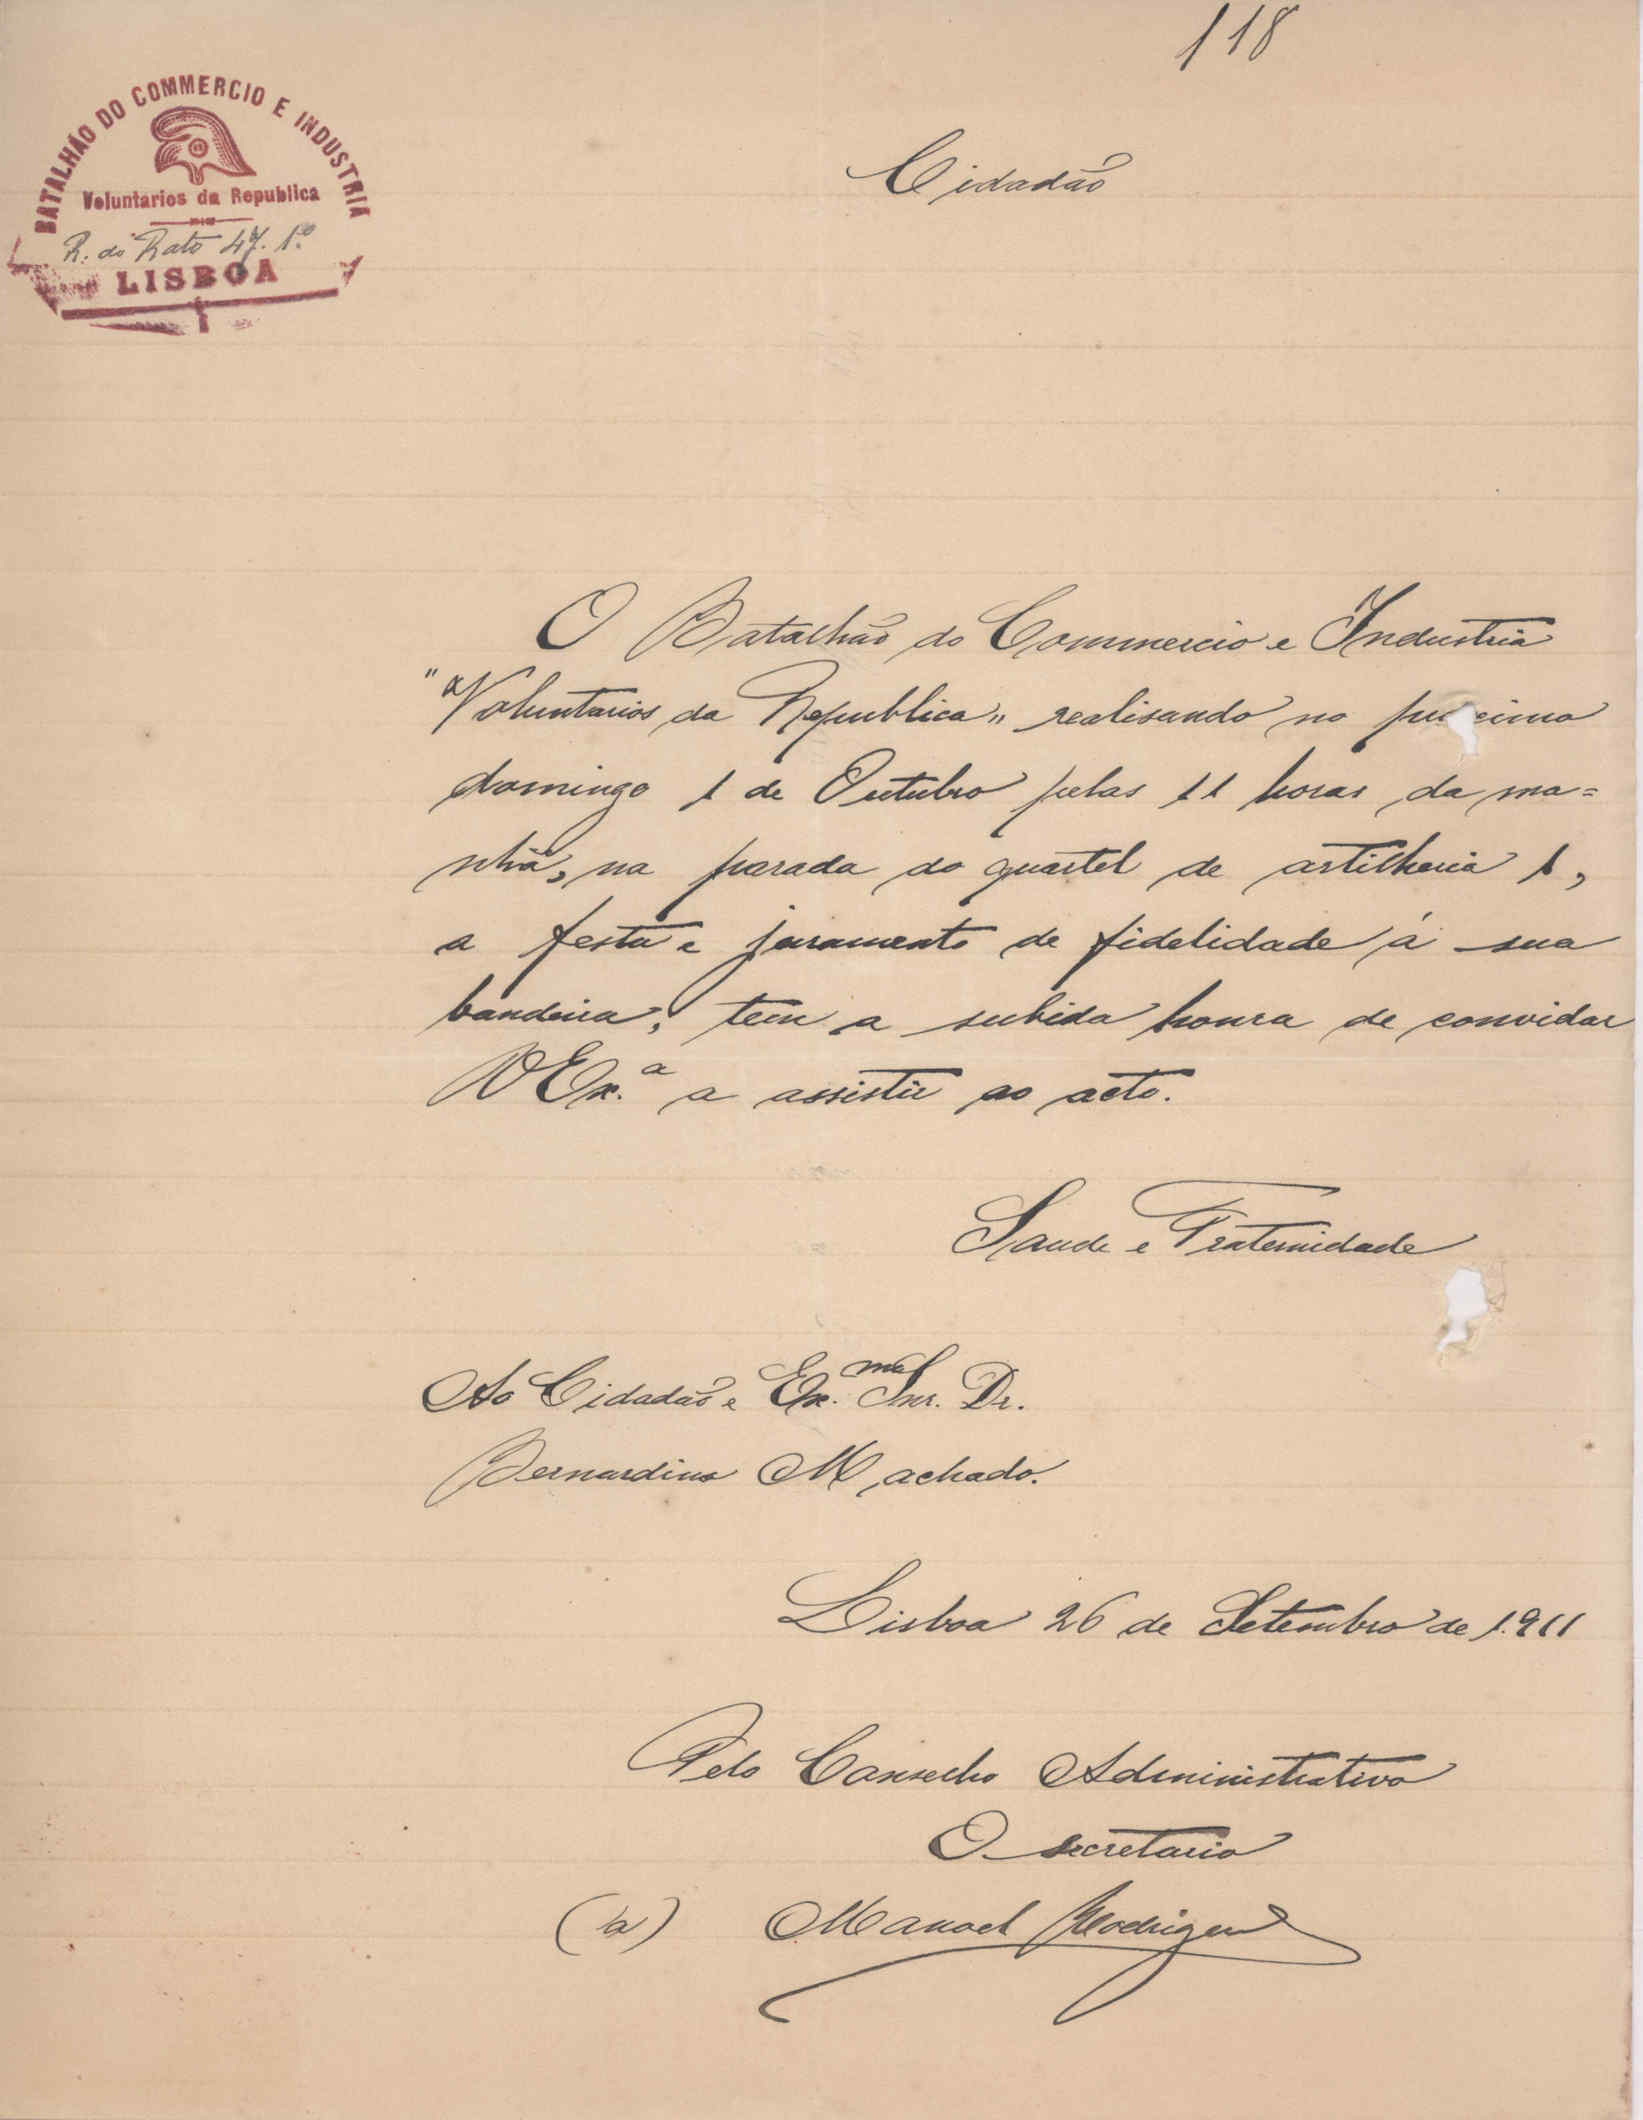 118
BATALHÃO DO COMMERCIO E INDUSTRIA
Voluntarios da Republica
R. do Rato 47. 1.º
LISBOA
Cidadão
O Batalhão do Commercio e Industria
"Voluntarios da Republica" realisando no proximo
domingo 1 de Outubro pelas 11 horas da ma=
nhã, na parada do quartel de artilheria 1,
a festa e juramento de fidelidade á sua
bandeira, tem a subida honra de convidar
V Ex.ª a assistir ao acto.
Saude e Fraternidade
Ao Cidadão e Ex.mo Snr. Dr.
Bernardino Machado.
Lisboa 26 de Setembro de 1.911
Pelo Conselho Administrativo
O secretario
(a) Manoel Rodrigues